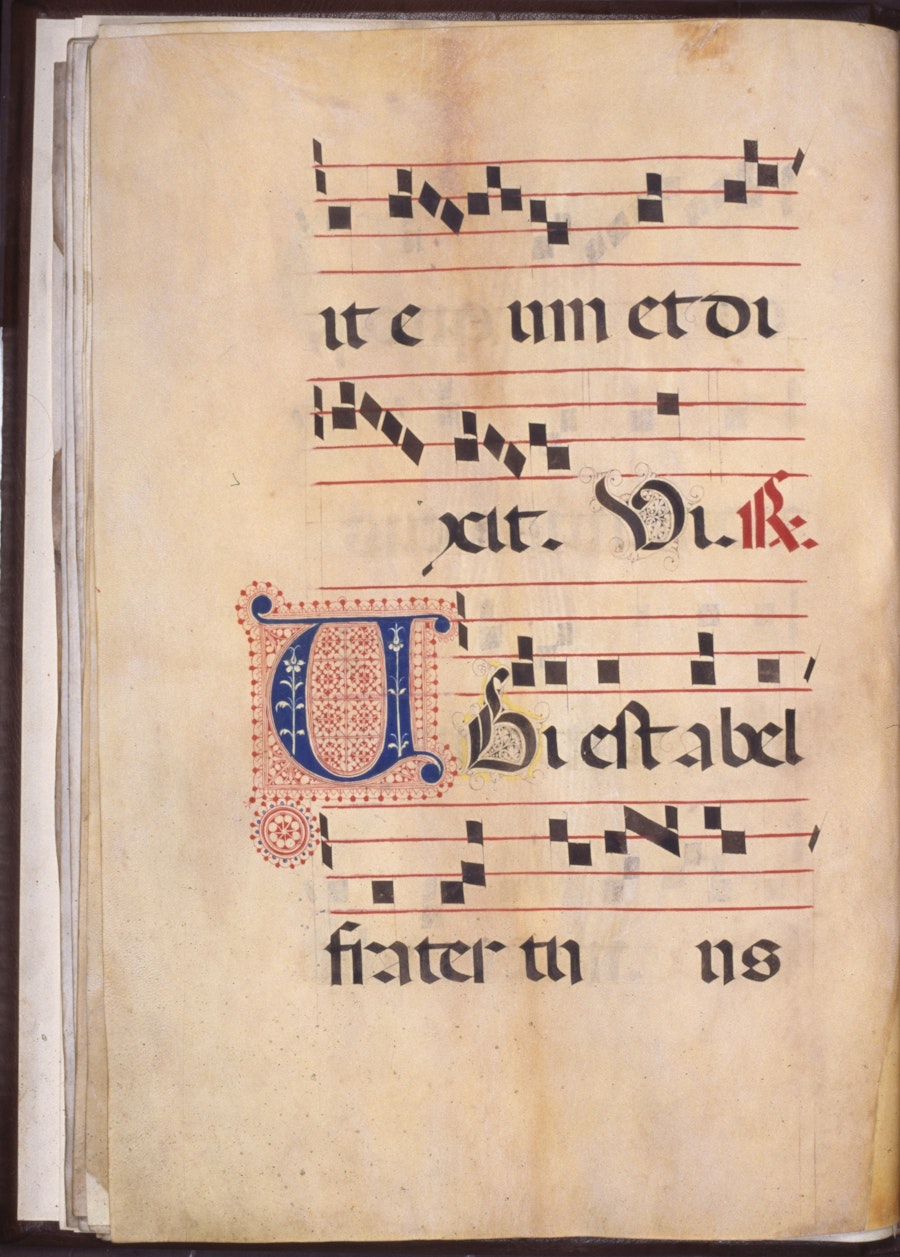 it e um et di
xit. Vi. ℟:
UBi est abel
frater tu us